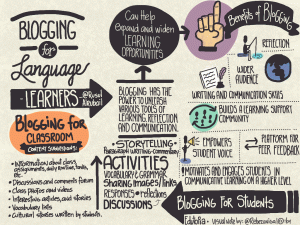 BLOGGING
for
Language
LEARNERS
BLOGGING FOR
CLASSROOM
CONTENT SUGGESTIONS:
• Information about class
assignments, daily routines, tasks,
etc.
• Discussions and comments forum
• Class photos and videos
• Interesting articles, and stories
• Vocabulary lists
• Cultural stories written by students.
Can Help
Expand and widen
LEARNING
OPPORTUNITIES
BLOGGING HAS THE
POWER TO UNLEASH
VARIOUS TOOLS OF
LEARNING, REFLECTION,
AND COMMUNICATION.
• STORYTELLING •
ACTIVITIES
VOCABULARY & GRAMMAR
SHARING IMAGES/LINKS
RESPONSES + REFLECTIONS
DISCUSSIONS
Benefits of Blogging
REFLECTION
WIDER
AUDIENCE
WRITING AND COMMUNICATION SKILLS
BUILDS A LEARNING SUPPORT
COMMUNITY
EMPOWERS
STUDENT VOICE
PLATFORM FOR
PEER FEEDBACK
MOTIVATES AND ENGAGES STUDENTS IN
COMMUNICATIVE LEARNING ON A HIGHER LEVEL
BLOGGING FOR STUDENTS